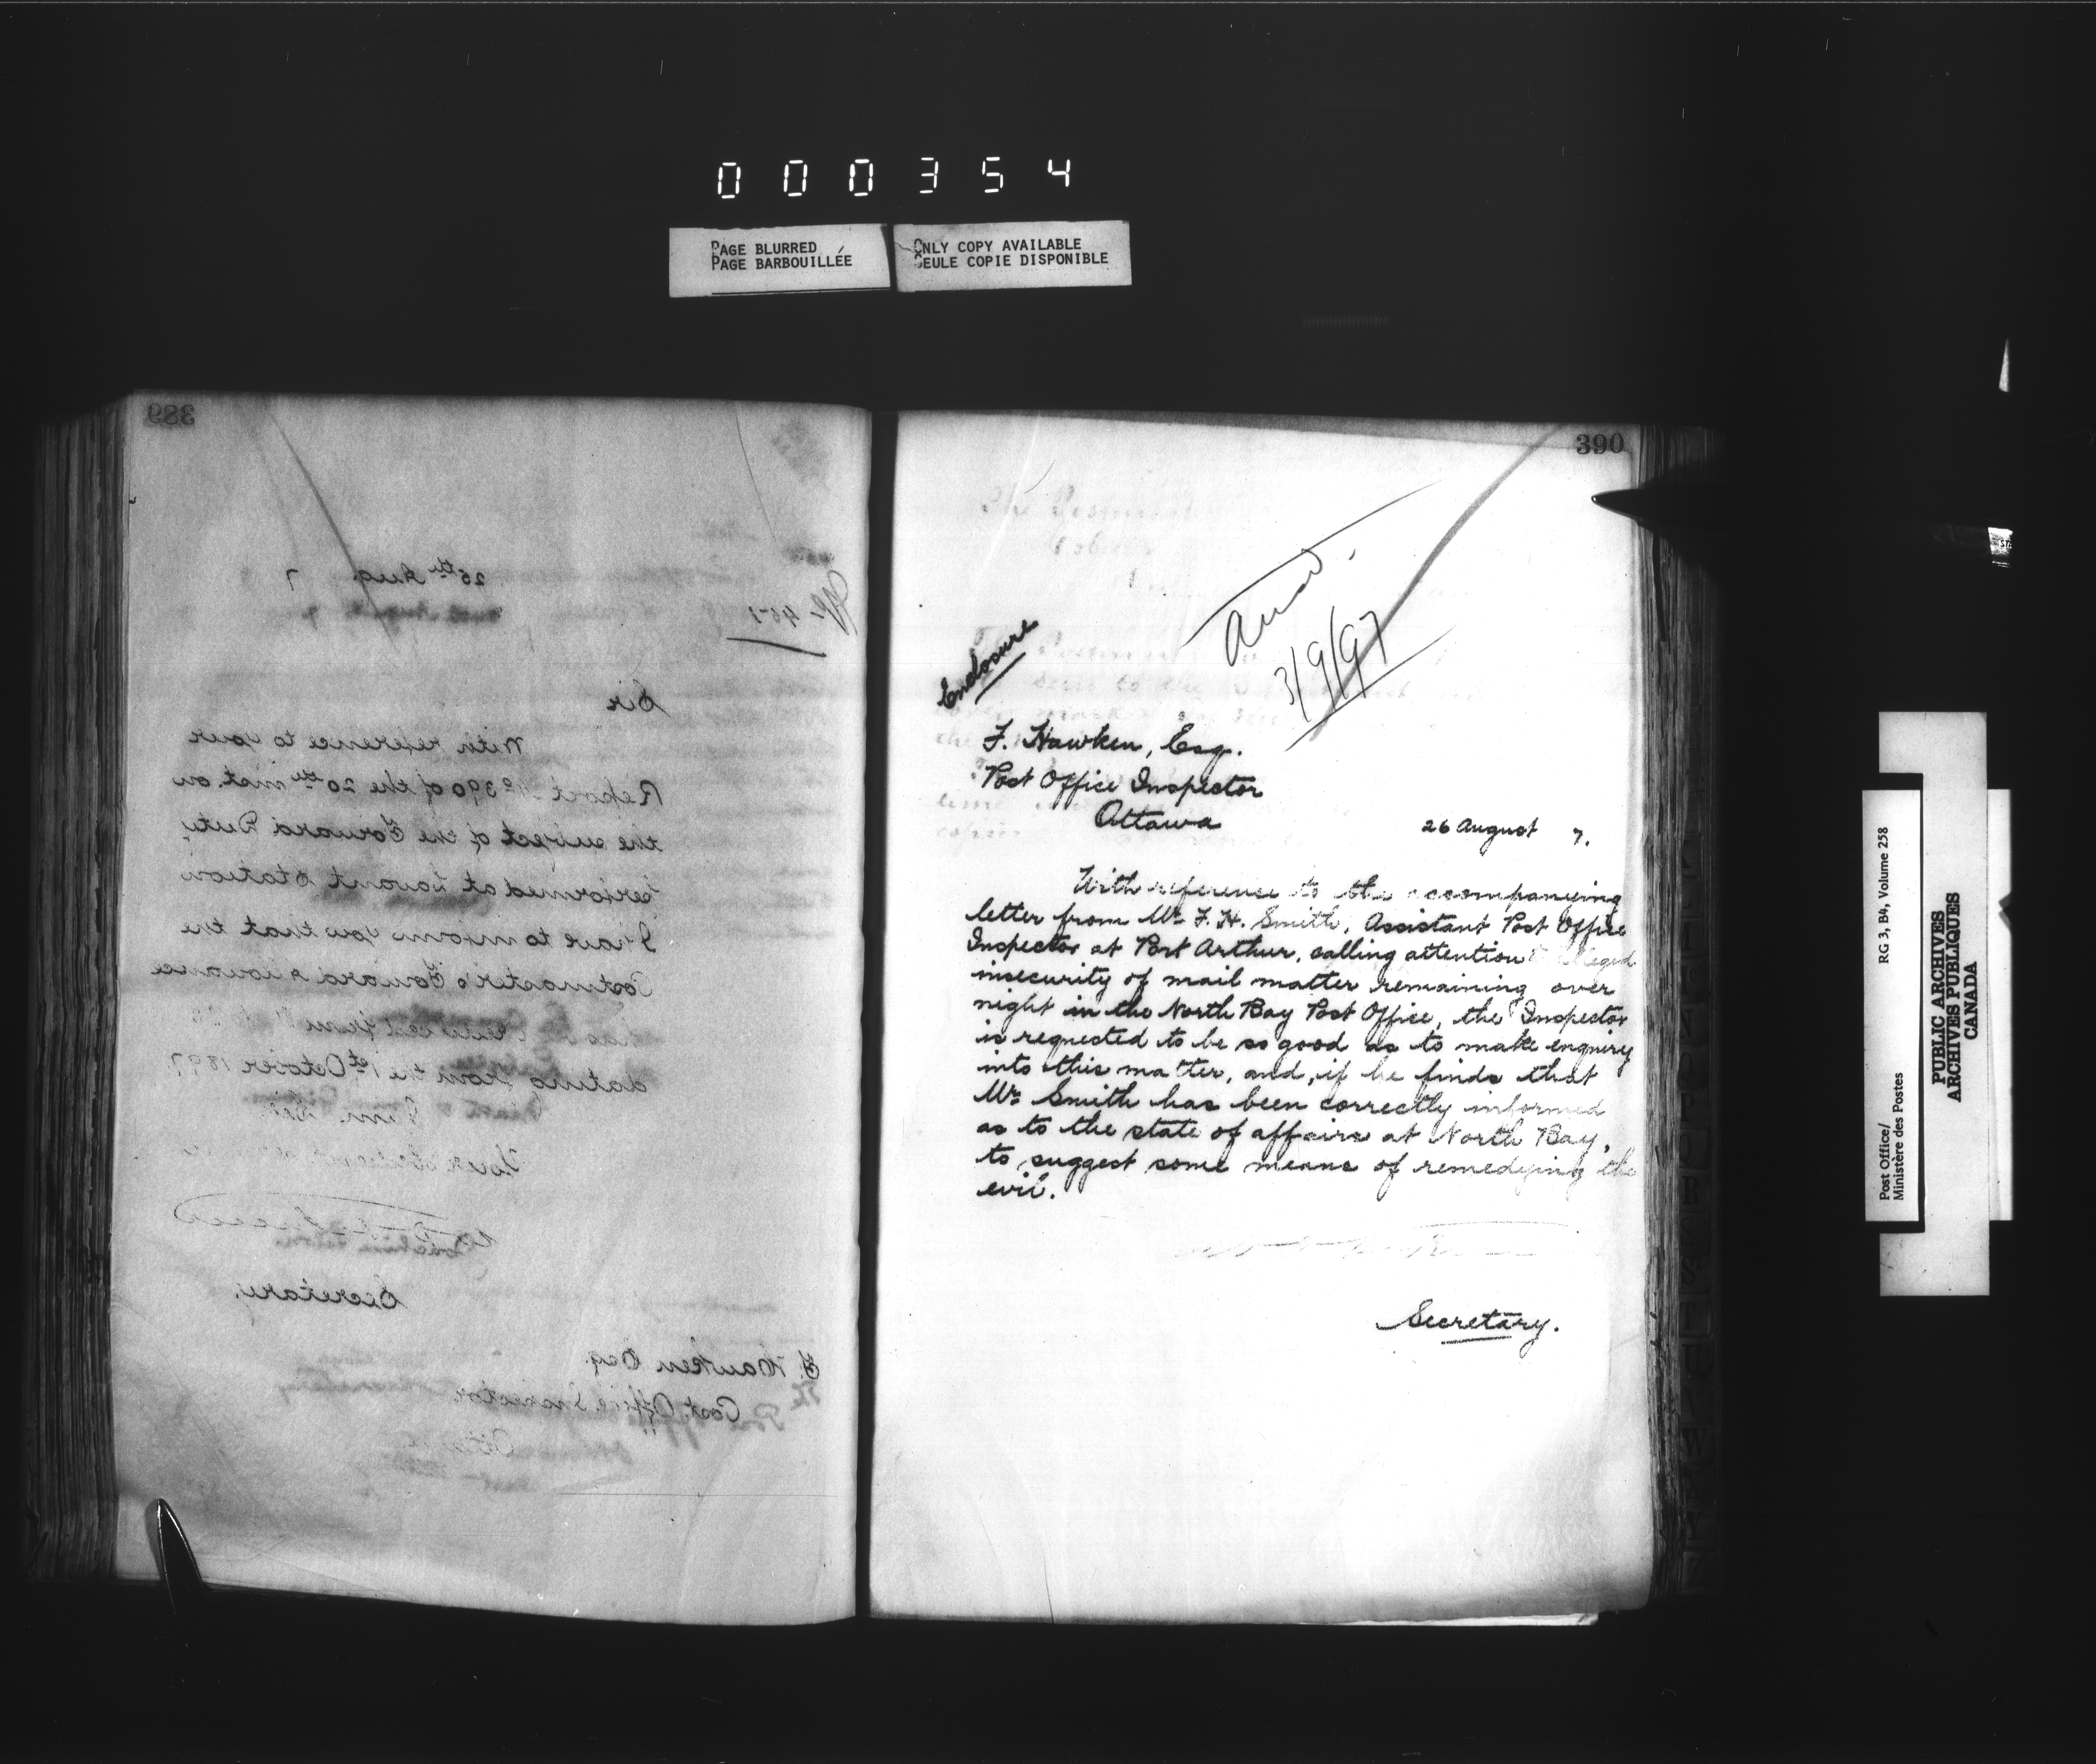 000354
PAGE BLURRED
PAGE BARBOUILLÉE
ONLY COPY AVAILABLE
SEULE COPIE DISPONIBLE
389
25th Aug 7
Sir
With reference to your
Report No 390 of the 20th inst. on
the subject of the Forward Duty
performed at Lavant Station
I have to inform you that the
Postmaster's Forward Allowance
has been
dating from the 1st October 1897
I am, Sir,
Your obedient
Secretary.
F. Hawken Esq.
Post Office Inspector
Ottawa
390
Ansd.
3/9/97
Enclosure
F. Hawken, Esq.
Post Office Inspector
Ottawa
26 August 7.
With reference to the accompanying
letter from Mr. F. H. Smith, Assistant Post Office
Inspector at Port Arthur, calling attention to alleged
insecurity of mail matter remaining over
night in the North Bay Post Office, the Inspector
is requested to be so good as to make enquiry
into this matter, and, if he finds that
Mr. Smith has been correctly informed
as to the state of affairs at North Bay,
to suggest some means of remedying the
evil.
Secretary.
Post Office/
Ministère des Postes
RG 3, B4, Volume 258
PUBLIC ARCHIVES
ARCHIVES PUBLIQUES
CANADA